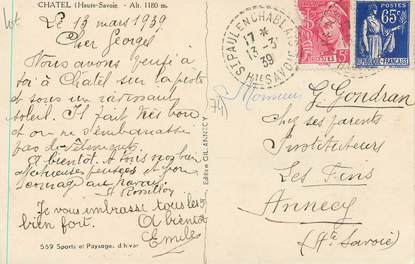 CHATEL (Haute-Savoie - Alt. 1180 m.
Le 13 mars 1939
Cher Georges
Nous avons pensé à
toi à Chatel sur la piste
et sous un ravissant
soleil. Il fait très bon
et on ne s'embarrasse
pas de vêtements.
et bientôt. A tous nos plus
affectueuses pensées et bon
courage au travail
Romilly
Je vous embrasse tous les
bien fort. A bientôt
Emile
569 Sports et Paysag. d'hiver
Edition GIL ANNECY
ST PAUL EN CHABLAIS
17 *
13 - 3
39
Hte SAVOIE
POSTES
15c
65c
Monsieur G. Gondran
Chez ses parents
Instituteurs
Les Fins
Annecy
(Hte Savoie)